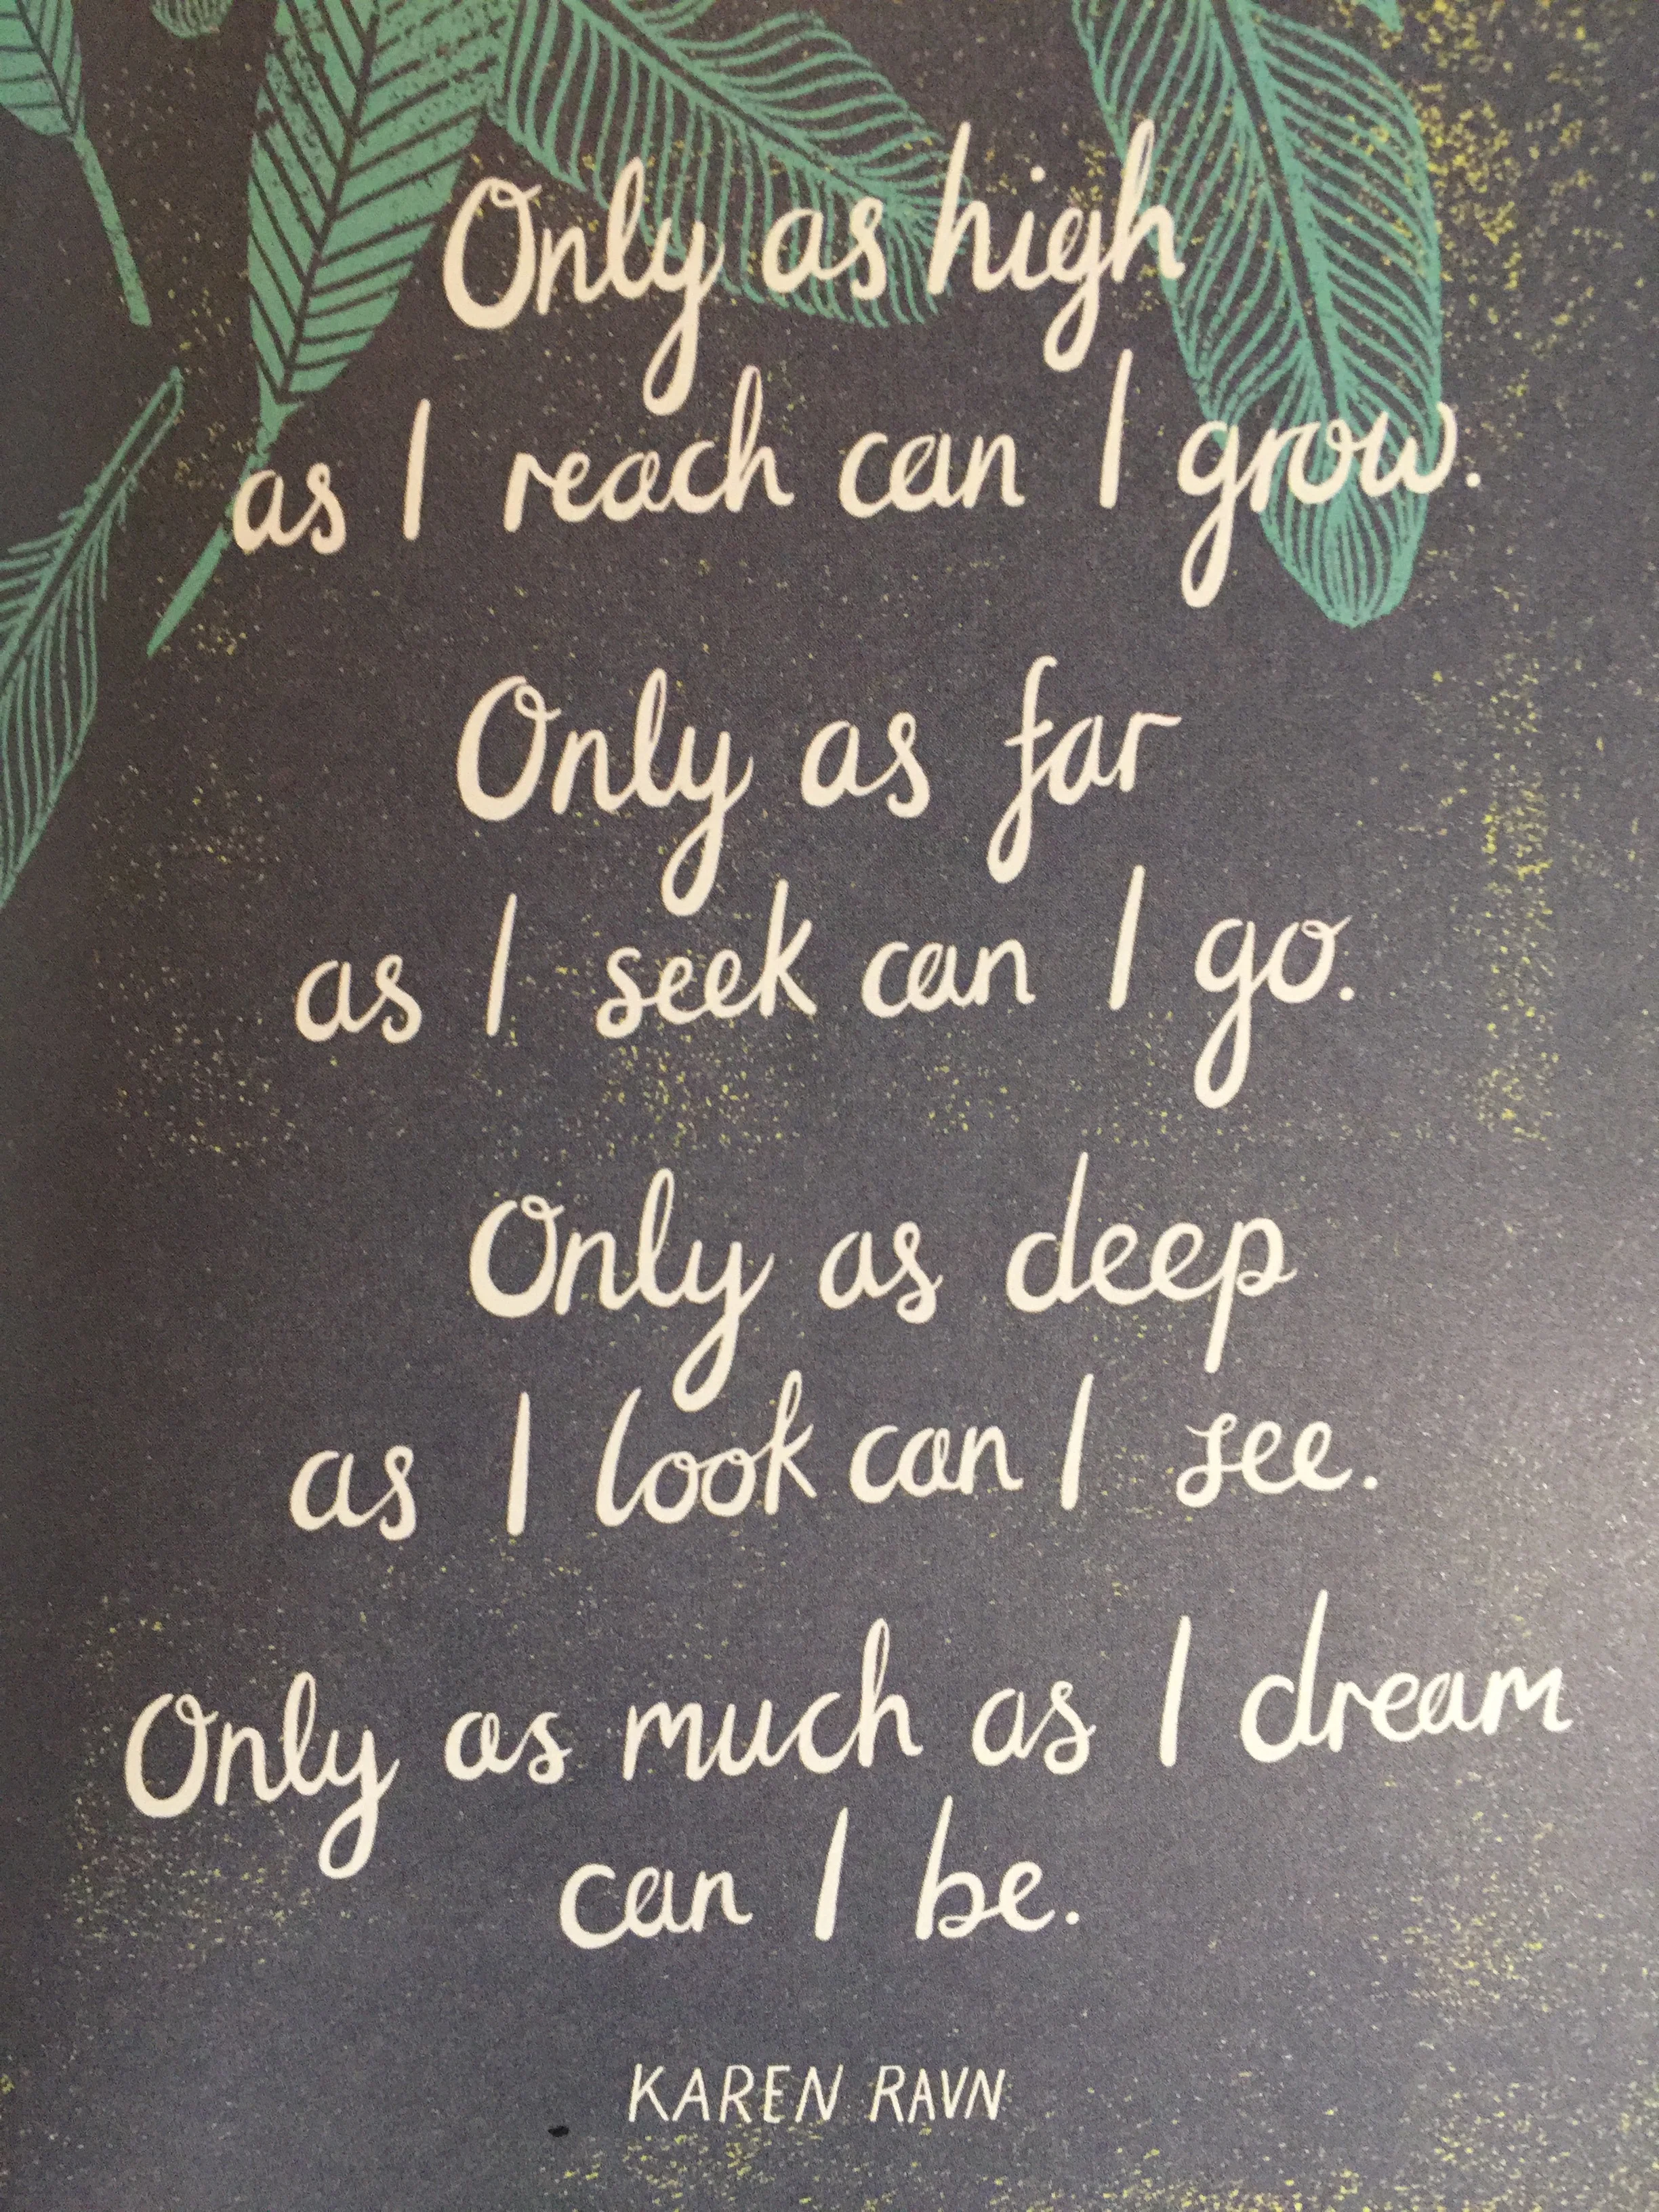 Only as high
as I reach can I grow.
Only as far
as I seek can I go.
Only as deep
as I look can I see.
Only as much as I dream
can I be.
KAREN RAVN